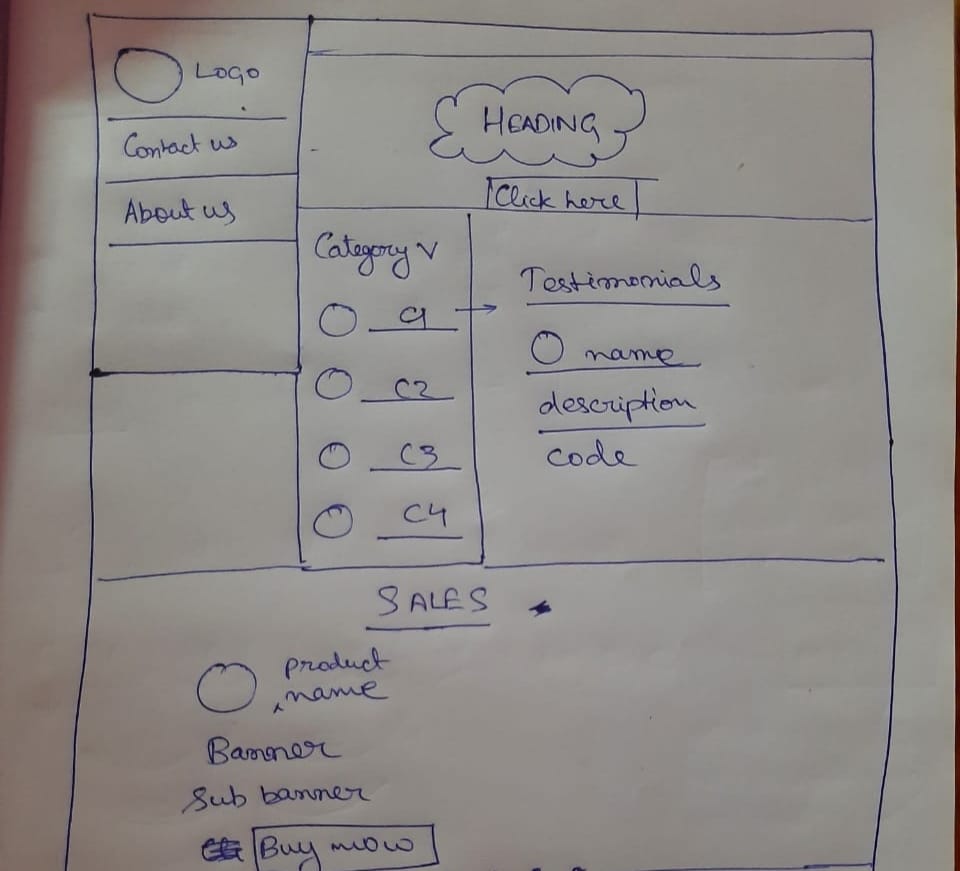 Logo
Contact us
About us
HEADING
Click here
Category v
C1
C2
C3
C4
Testimonials
name
description
code
SALES
product
name
Banner
Sub banner
Buy now